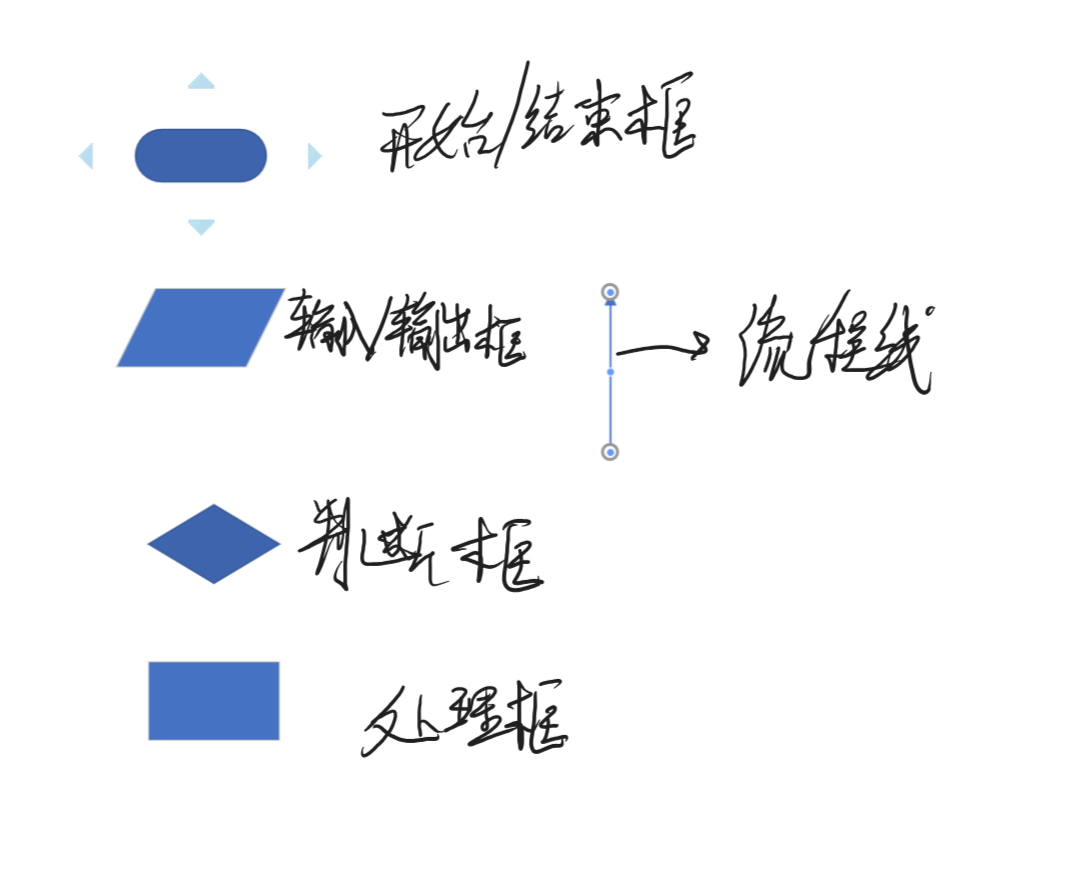 开始/结束框
输入/输出框
流程线
判断框
处理框